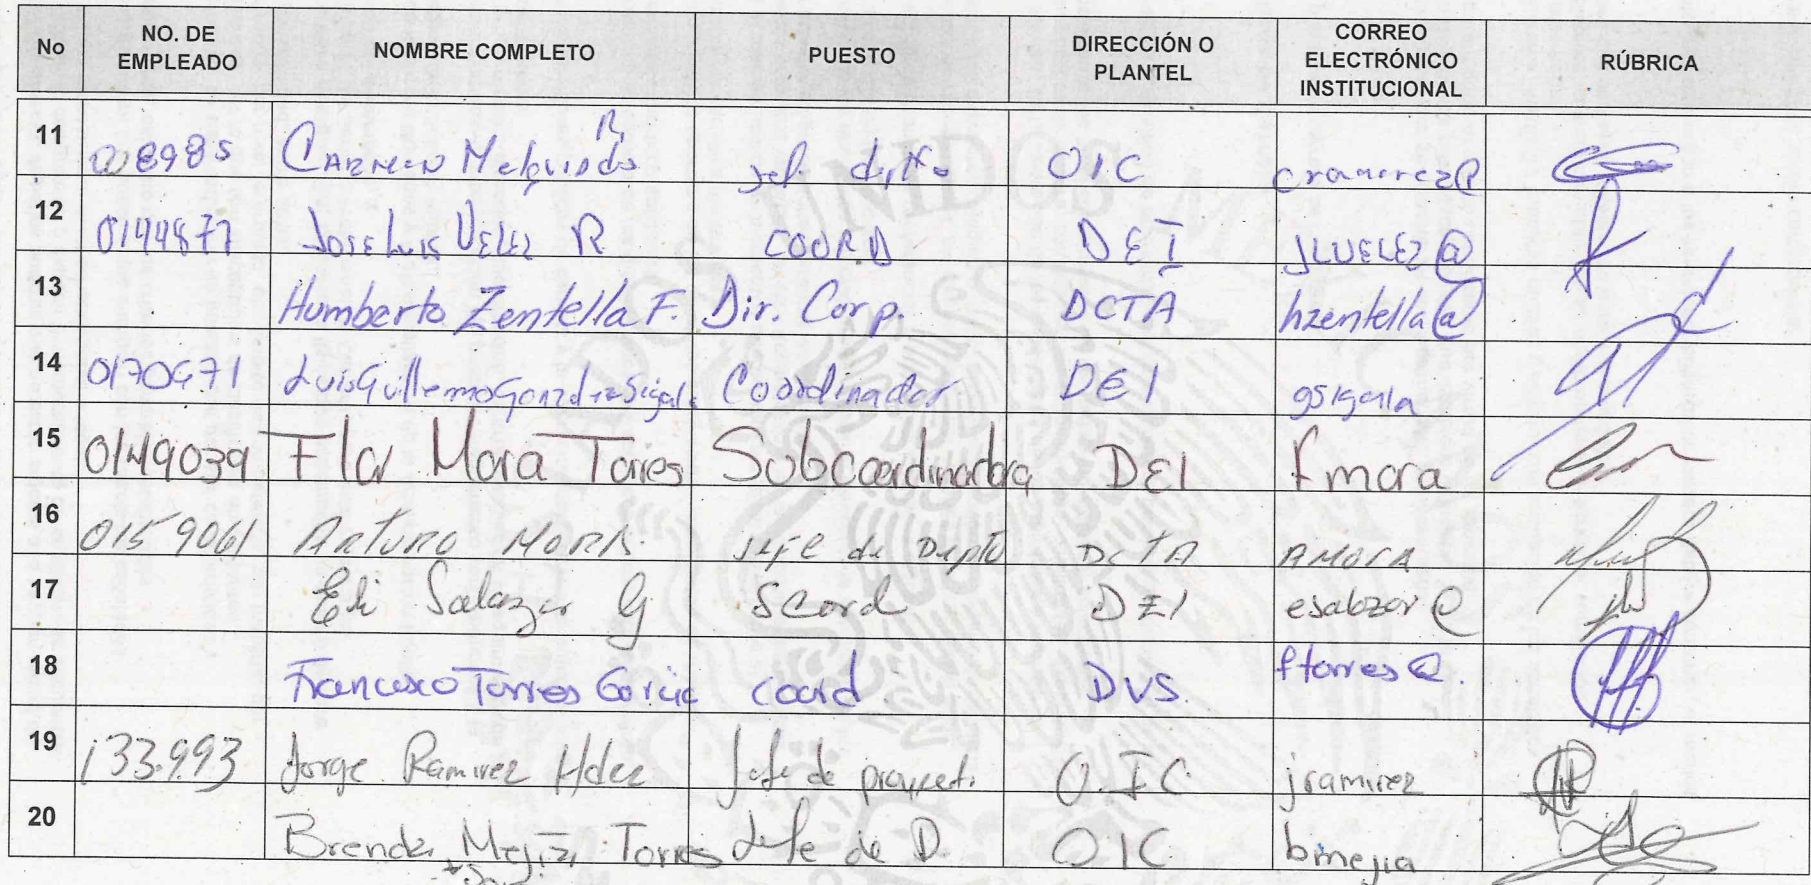 No NO. DE EMPLEADO NOMBRE COMPLETO PUESTO DIRECCIÓN O PLANTEL CORREO ELECTRÓNICO INSTITUCIONAL RÚBRICA
11 CARMEN R. OIC cramirez@
12 0144877 Jose Luis VELEZ R COORD DEI JLVELEZ@
13 Humberto Zentella F. Dir. Corp. DCTA hzentella@
14 Luis Guillermo Coordinador DEI gsigala
15 0149039 Flor Mora Torres Subcoordinadora DEI fmora
16 0159061 Arturo MORA Jefe de Depto DCTA AMORA
17 Eli Salazar G Scord DEI esalazar@
18 Francisco Torres Garcia coord DVS. ftorres@.
19 133993 Jorge Ramirez Hdez Jefe de O.I.C. jramirez
20 Brenda Mejía Torres Jefe de D. OIC bmejia